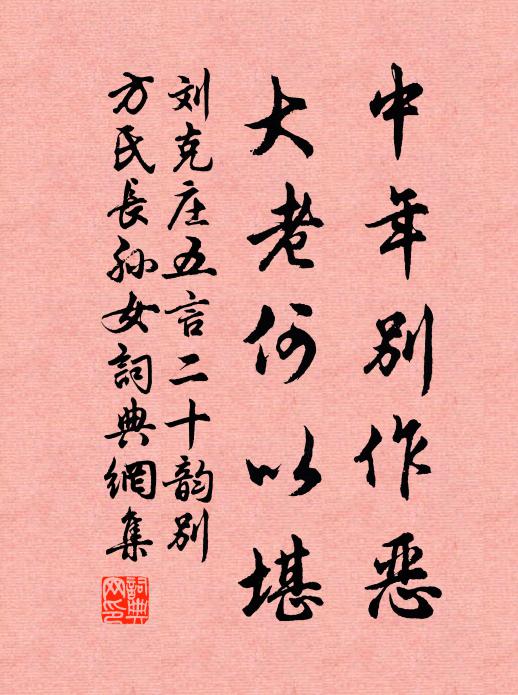 中年别作恶
大老何以堪
刘克庄五言二十韵别
方氏長孙女詞典網集
詞典網印